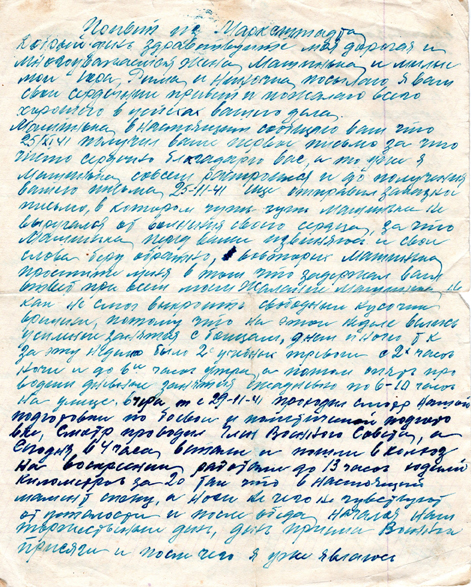 Привет из Марксштадта
Добрый день здравствуйте моя дорогая и
многоуважаемая жена Машинька и милые
дети Гера, Римма и Ниночка посылаю я вам
свой сердечный привет и пожелаю всего
хорошего в успехах вашего дела.
Машинька в настоящий сообщаю вам что
25/XI-41 получил ваше первое письмо за что
чисто сердечно благодарю вас, а то уже я
Машинька совсем растерялся и до получения
вашего письма 25-11-41 еще отправил заказное
письмо, в котором чуть-чуть Машинька не
вырвался от волнения своего сердца, за что
Машинька перед вами извиняюсь и свои
слова беру обратно, во вторых Машинька
простите меня в том что задержал вам
ответ при всем моем желании Машинька не
как не смог выкроить свободный кусочек
времени, потому что на этой неделе велись
усиленно занятия с бойцами, днем и ночи, т.к
за эту неделю были 2е учебные тревоги с 2х часов
ночи и до 6ти часов утра, а потом опять про
водили дневные занятия ежедневно по 8-10 часов
на улице. вчера т.е 29-11-41 проходил смотр нашей
подготовки по боевой и политической подгото
вке, смотр проводил Член Военного Совета, а
сегодня в 4 часа встали и пошли в колхоз
на воскресник работали до 13 часов ходили
километров за 20 так что в настоящий
момент спешу, а ноги не чего не чувствуют
от усталости и после обеда начался наш
торжественный день, день приема Военной
присяги и после чего я уже являюсь